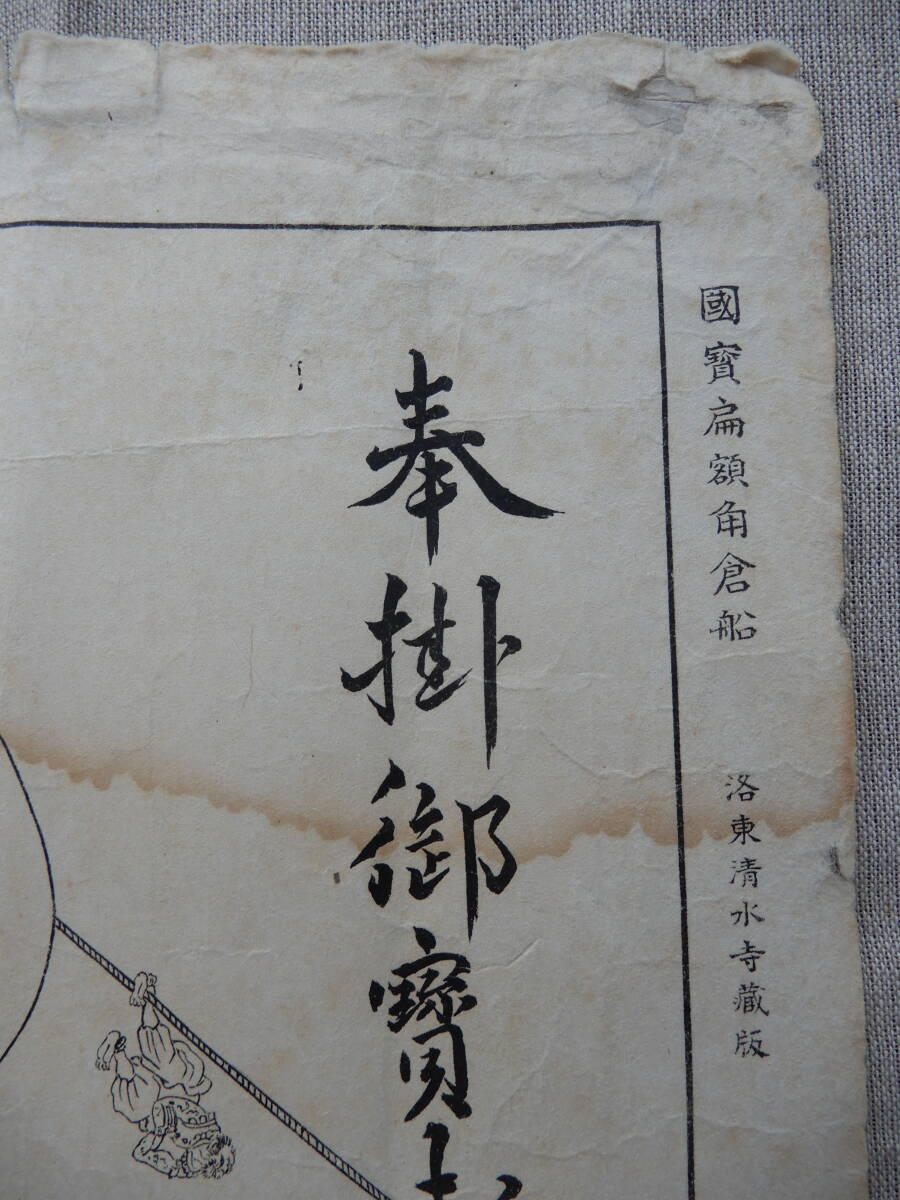 國寳扁額角倉船
洛東清水寺藏版
奉掛御寳